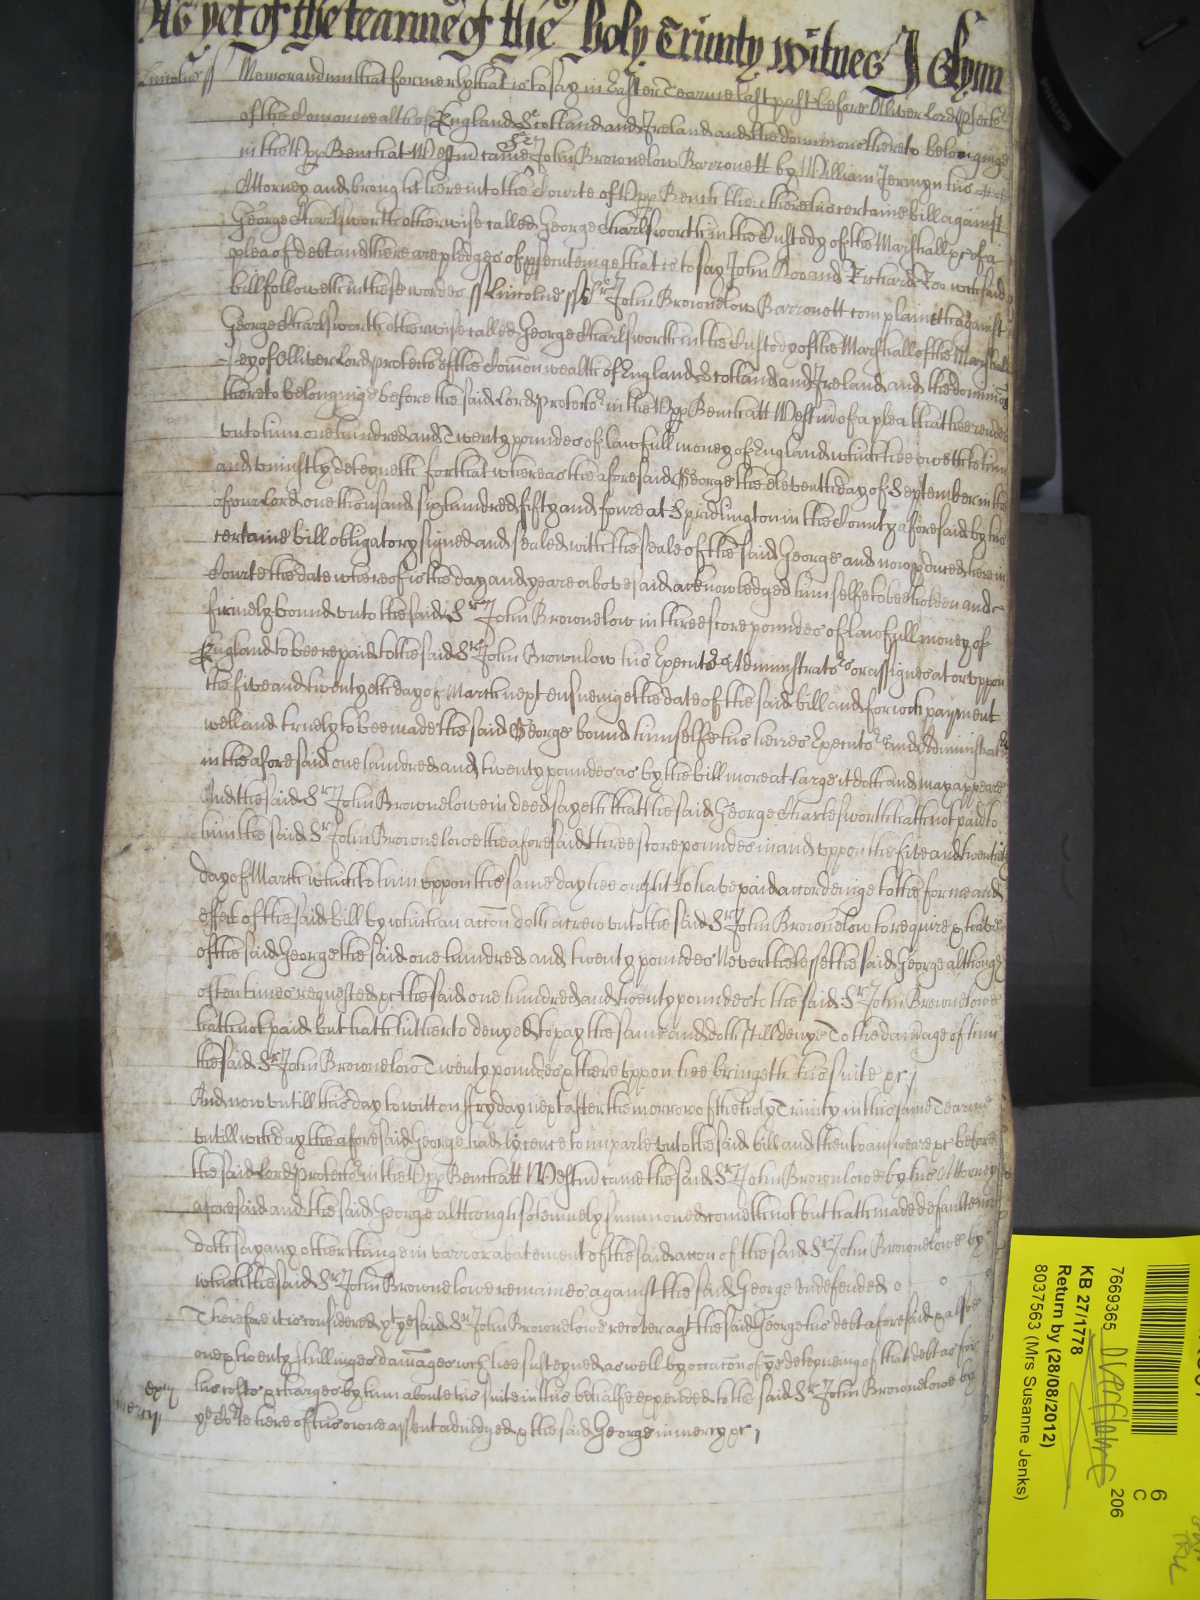 As yet of the tearme of the holy Trinity Witnes J Glynn
Lincolne ss Memorandum that formerly that is to say in Easter Tearme last past before Oliver Lord Protector
of the Comonwealth of England Scotland and Ireland and the dominions thereto belonginge
in the Upp Bench at Westm came Sr John Brownelow Barronett by William Jermyn his
Attorney and brought here into the Courte of Upp Bench then there his certaine bill against
George Charlsworth otherwise called George Charlsworth in the Custody of the Marshall &c of a
plea of debt and there are pledges of prsecuteinge that is to say John Doo and Richard Roo which said
bill followeth in these wordes ss Lincolne ss Sr John Brownelow Barronett complaineth against
George Charlsworth otherwise called George Charlsworth in the Custody of the Marshall of the Marshall
sey of Olliver Lord Protector of the Comon wealth of England Scotland and Ireland and the dominions
thereto belonginge before the said Lord Protector in the Upp Bench att Westm of a plea that hee render
unto him one hundred and Twenty poundes of lawfull money of England which hee oweth to him
and uniustly deteyneth for that whereas the aforesaid George the eleventh day of September in the
of our Lord one thousand six hundred fifty and foure at Spridlington in the County aforesaid by his
certaine bill obligatory signed and sealed with the seale of the said George and now pduced here in
Courte the date whereof is the day and yeare abovesaid acknowledged himselfe to bee holden and
firmely bound unto the said Sr John Brownelow in threescore poundes of lawfull money of
England to bee repaid to the said Sr John Brownlow his Executors Administrators or assignes at or uppon
the five and twentyeth day of March next ensueinge the date of the said bill and for wch payment
well and truely to bee made the said George bound himselfe his heires Executors and Administrators
in the aforesaid one hundred and twenty poundes as by the bill more at large it doth and may appeare
And the said Sr John Brownelowe in deed sayeth that the said George Charlesworth hath not paid to
him the said Sr John Brownelowe the aforesaid threescore poundes in and uppon the five and twentith
day of March which to him uppon the same day hee ought to have paid accordeinge to the forme and
effect of the said bill by which an accon doth acrew unto the said Sr John Brownelow to require & have
of the said George the said one hundred and twenty poundes Neverthelesse the said George although
oftentimes requested &c the said one hundred and twenty poundes to the said Sr John Brownelowe
hath not paid but hath hitherto denyed to pay the same and doth still denye To the damage of him
the said Sr John Brownelow Twenty poundes & thereuppon hee bringeth his suite &c
And now untill this day to witt on ffryday next after the morrow of the holy Trinity in this same Tearme
untill wch day the aforesaid George had lycence to imparle unto the said bill and then to answeare &c before
the said Lord Protector in the Upp Bench att Westm came the said Sr John Brownlowe by his Attorney
aforesaid and the said George although solemnely summoned cometh not but hath made default nor
doth say any other thinge in barr or abatement of the said accon of the said Sr John Brownelowe by
which the said Sr John Brownelowe remaines against the said George undefended
Therefore it is considered yt ye said Sr John Brownelowe recover agt the said George his debt aforesaid & alsoe
one & twenty shillinges damages wch hee susteyned as well by occacon of ye deteyneing of that debt as for
exr his costs & charges by him about his suite in this behalfe expended to the said Sr John Brownelowe by
mercy ye Corte here of his owne assent adiudged & the said George in mercy &c
PHILIPS
7669365
KB 27/1778
Return by (28/08/2012)
8037563 (Mrs Susanne Jenks)
206
C
6